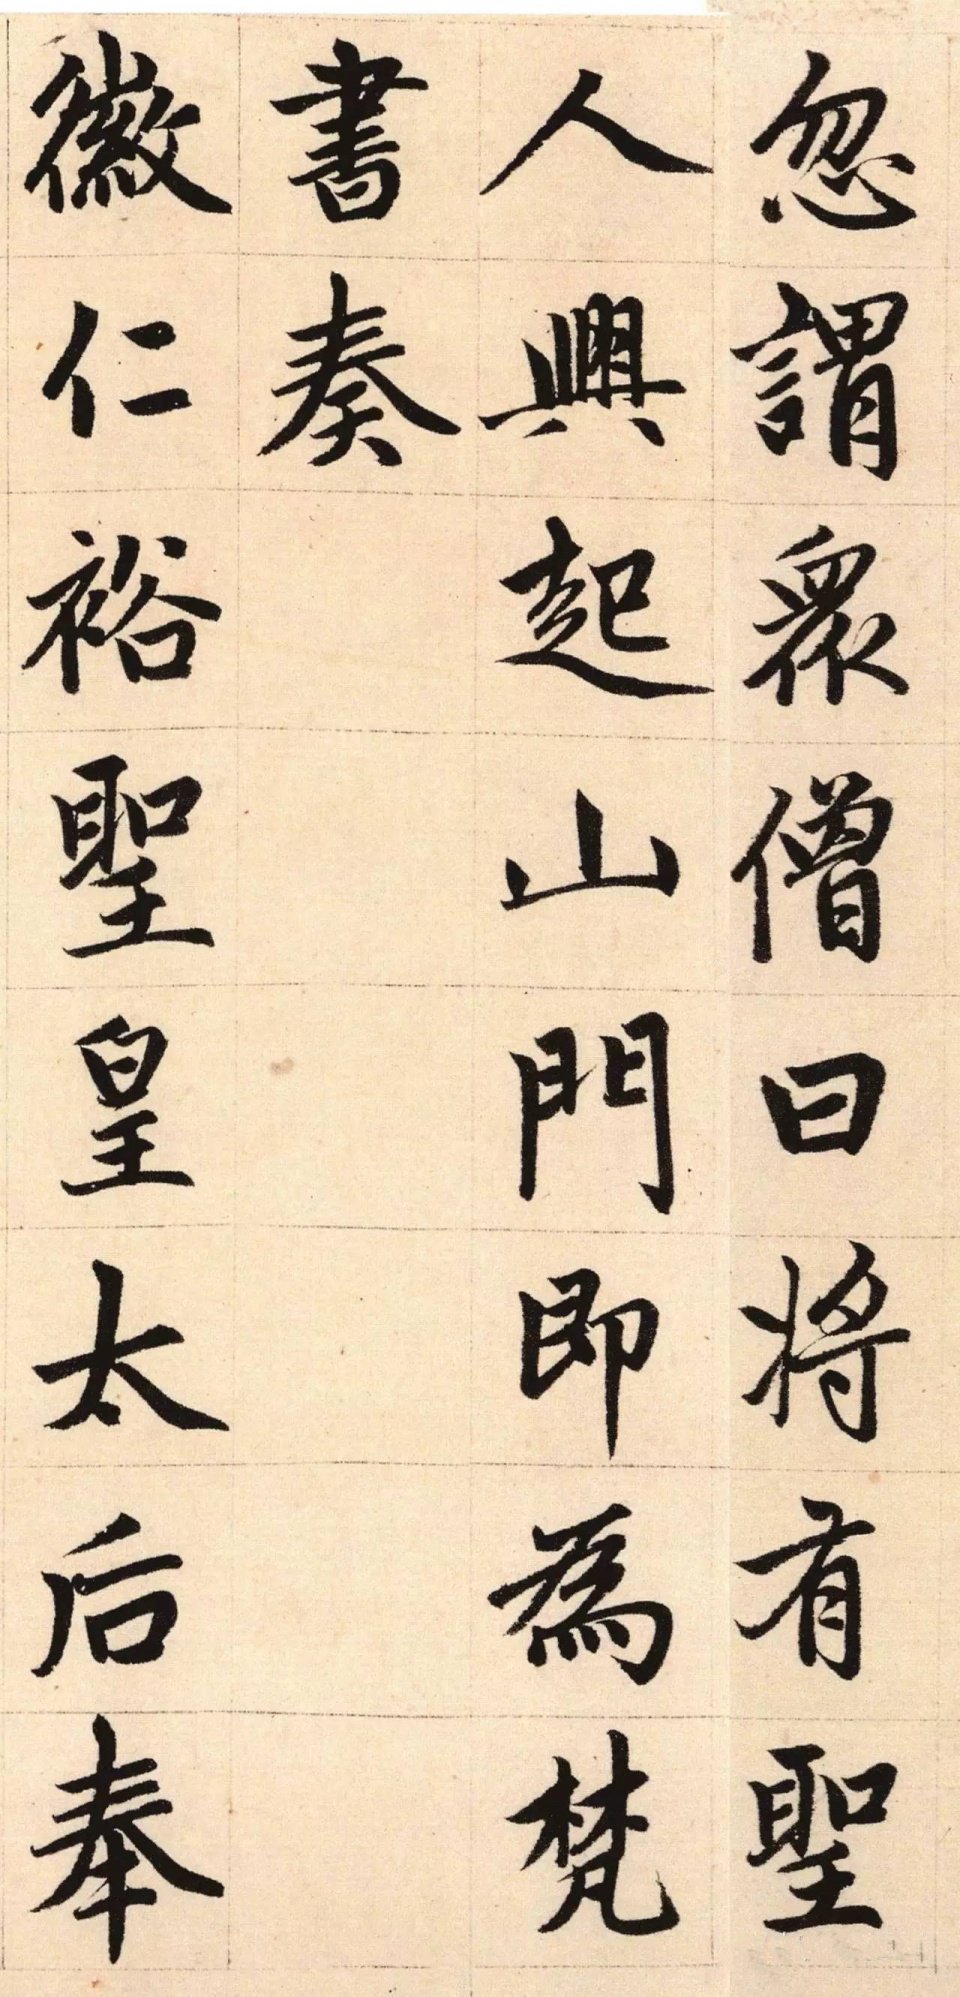 忽謂衆僧曰將有聖
人興起山門即為梵
書奏
徽仁裕聖皇太后奉